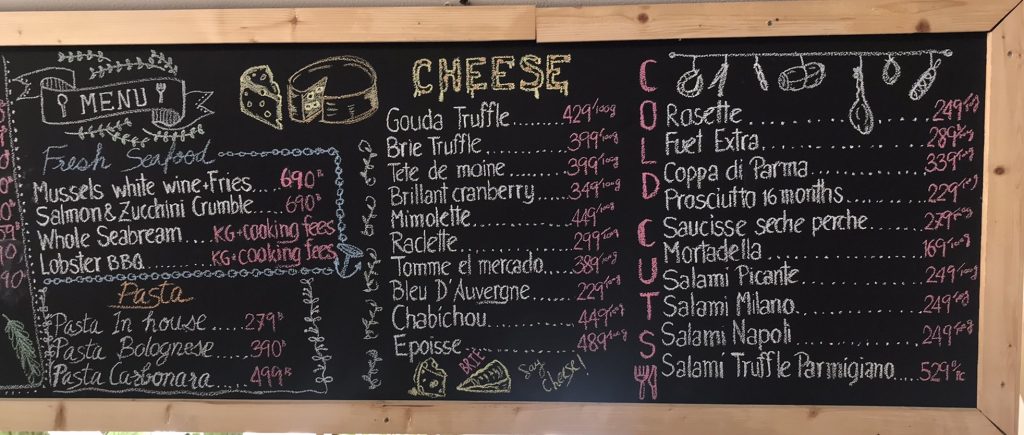 MENU
Fresh Seafood
Mussels white wine+Fries....690฿
Salmon & Zucchini Crumble ...690฿
Whole Seabream ....KG+cooking fees
Lobster BBQ............KG+cooking fees
Pasta
Pasta In house .....279฿
Pasta Bolognese.....390฿
Pasta Carbonara ....499฿
CHEESE
Gouda Truffle.......429/100g
Brie Truffle...........399/100g
Tete de moine.......399/100g
Brillant cranberry....349/100g
Mimolette.............449/100g
Raclette...............299/100g
Tomme el mercado....389/100g
Bleu D'Auvergne......229/100g
Chabichou............449/100g
Epoisse..............489/100g
BRIE
Say Cheese!
COLD CUTS
Rosette.....................249/100g
Fuet Extra..................289/pc
Coppa di Parma...........339/100g
Prosciutto 16 months......229/100g
Saucisse seche perche.....279/100g
Mortadella................169/100g
Salami Picante............249/100g
Salami Milano............249/100g
Salami Napoli............249/100g
Salami Truffle Parmigiano....529/pc